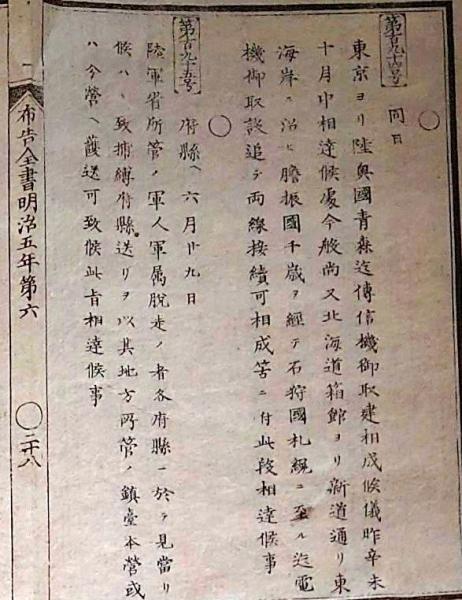 第百九十四号
同日
東京ヨリ陸奥國青森迄傳信機御取建相成候儀昨辛未
十月中相達候處今般尚又北海道箱館ヨリ新道通リ東
海岸ニ沿ヒ膽振國千歳ヲ經テ石狩國札幌ニ至ル迄電
機御取設追テ両線接續可相成筈ニ付此段相達候事
第百九十五号
府縣ヘ六月廿九日
陸軍省所管ノ軍人軍属脱走ノ者各府縣ニ於テ見當リ
候ハヽ致捕縛府縣送リヲ以其地方所管ノ鎮臺本營或
ハ分營ヘ護送可致候此旨相達候事
布告全書明治五年第六
二十八